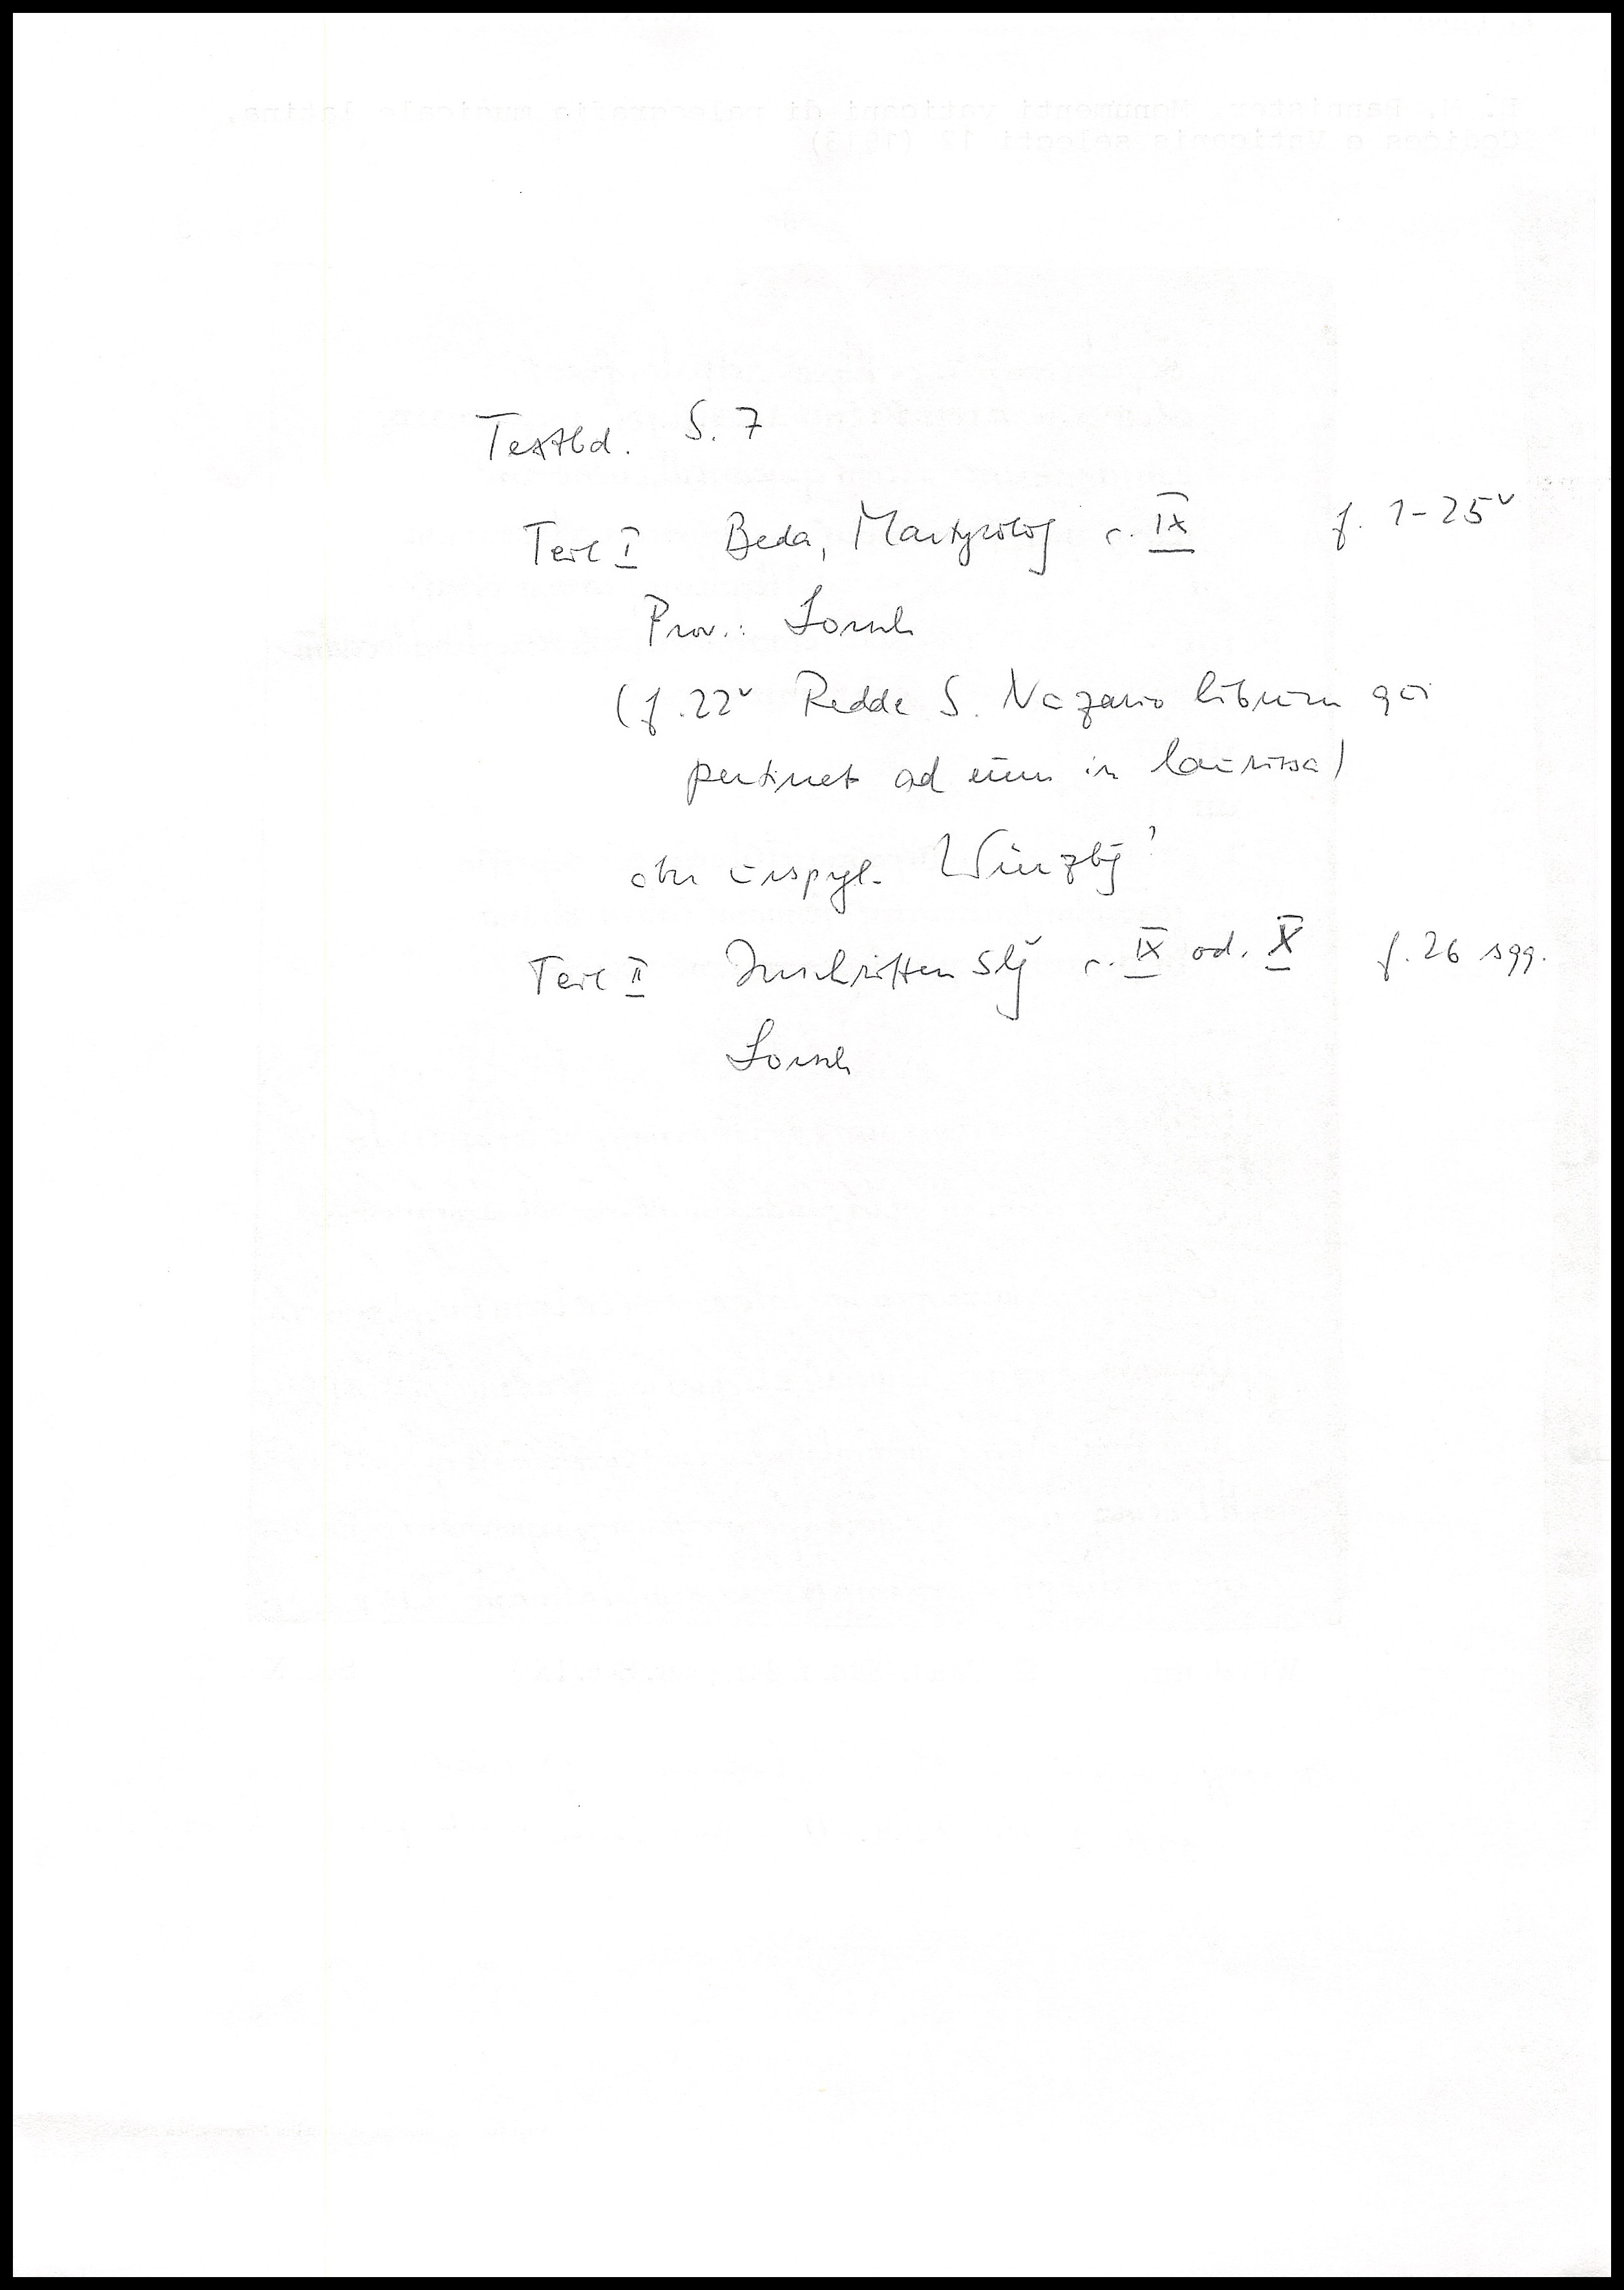 Textbd. S. 7
Teil I Beda, Martyrolog s. IX f. 1-25v
Prov.: Lorsch
(f. 22v Redde S. Nazario librum qui
pertinet ad eum in Laurissa)
aber urspgl. Würzbg?
Teil II Inschriftenslg s. IX od. X f. 26 sqq.
Lorsch